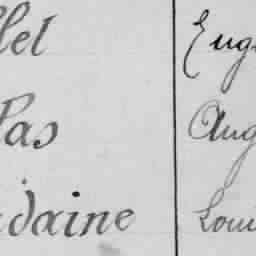 llet Eug
las Aug
udaine Loui